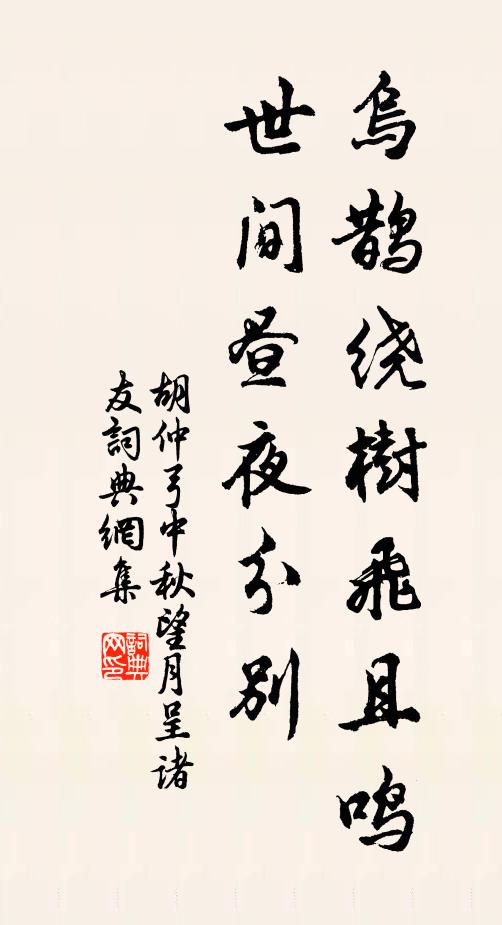 乌鹊绕樹飛且鸣
世间昼夜分别
胡仲弓中秋望月呈诸
友詞典網集
詞典
网印